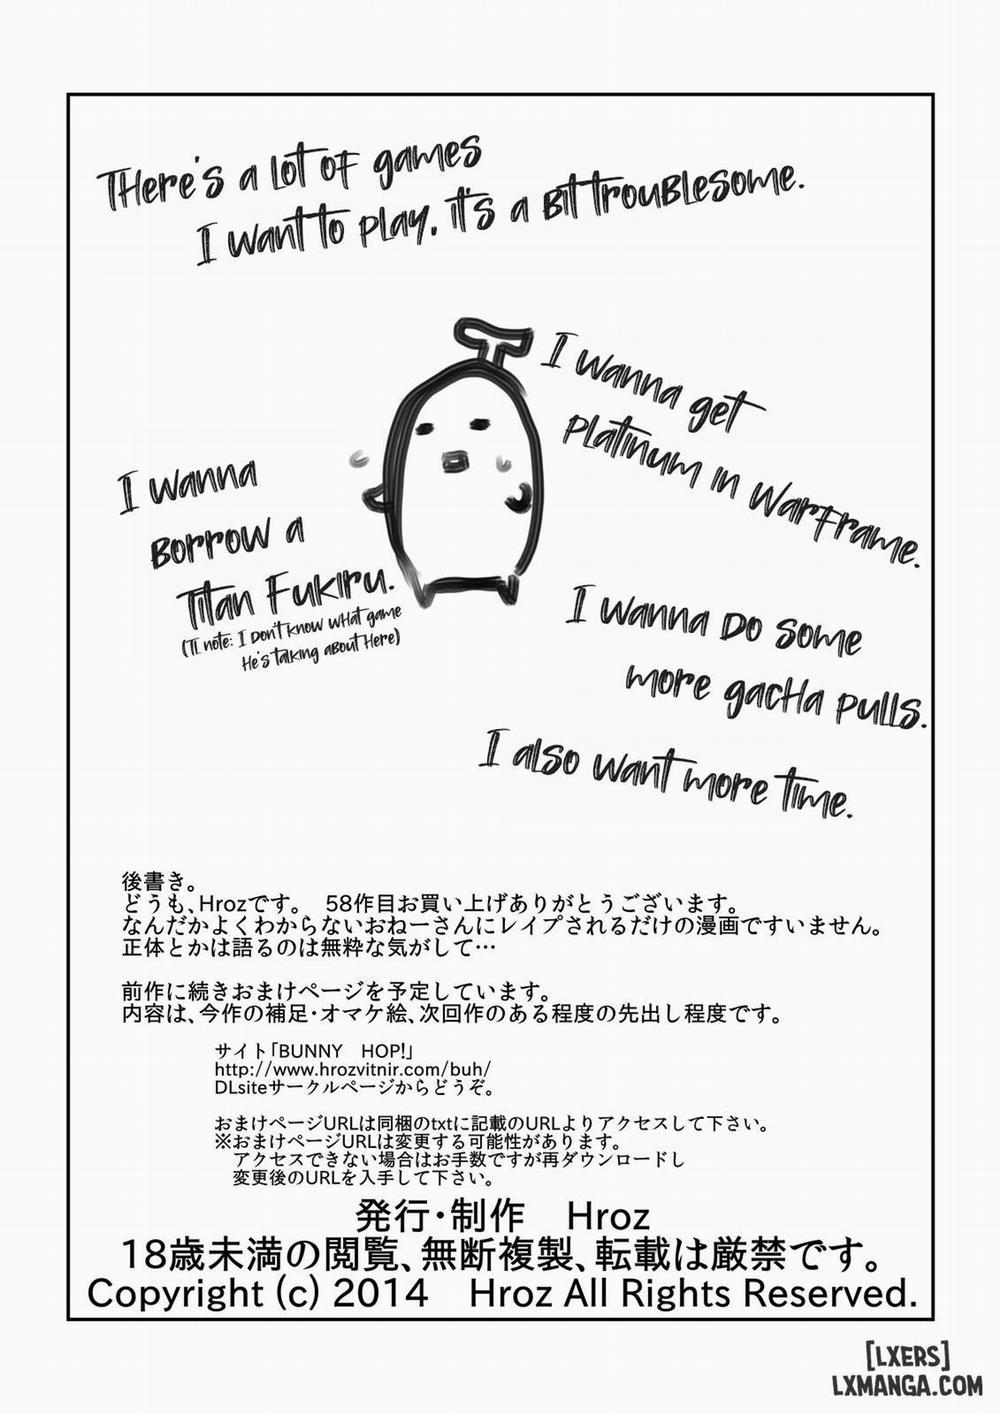 There's a lot of games
I want to play, it's a bit troublesome.
I wanna get
platinum in Warframe.
I wanna
borrow a
Titan Fukiru.
(TL note: I don't know what game
he's talking about here)
I wanna do some
more gacha pulls.
I also want more time.
後書き。
どうも、Hrozです。　58作目お買い上げありがとうございます。
なんだかよくわからないおねーさんにレイプされるだけの漫画ですいません。
正体とかは語るのは無粋な気がして…
前作に続きおまけページを予定しています。
内容は、今作の補足・オマケ絵、次回作のある程度の先出し程度です。
サイト「BUNNY　HOP!」
http://www.hrozvitnir.com/buh/
DLsiteサークルページからどうぞ。
おまけページURLは同梱のtxtに記載のURLよりアクセスして下さい。
※おまけページURLは変更する可能性があります。
アクセスできない場合はお手数ですが再ダウンロードし
変更後のURLを入手して下さい。
発行・制作　Hroz
18歳未満の閲覧、無断複製、転載は厳禁です。
Copyright (c) 2014　Hroz All Rights Reserved.
[LXERS]
LXMANGA.COM